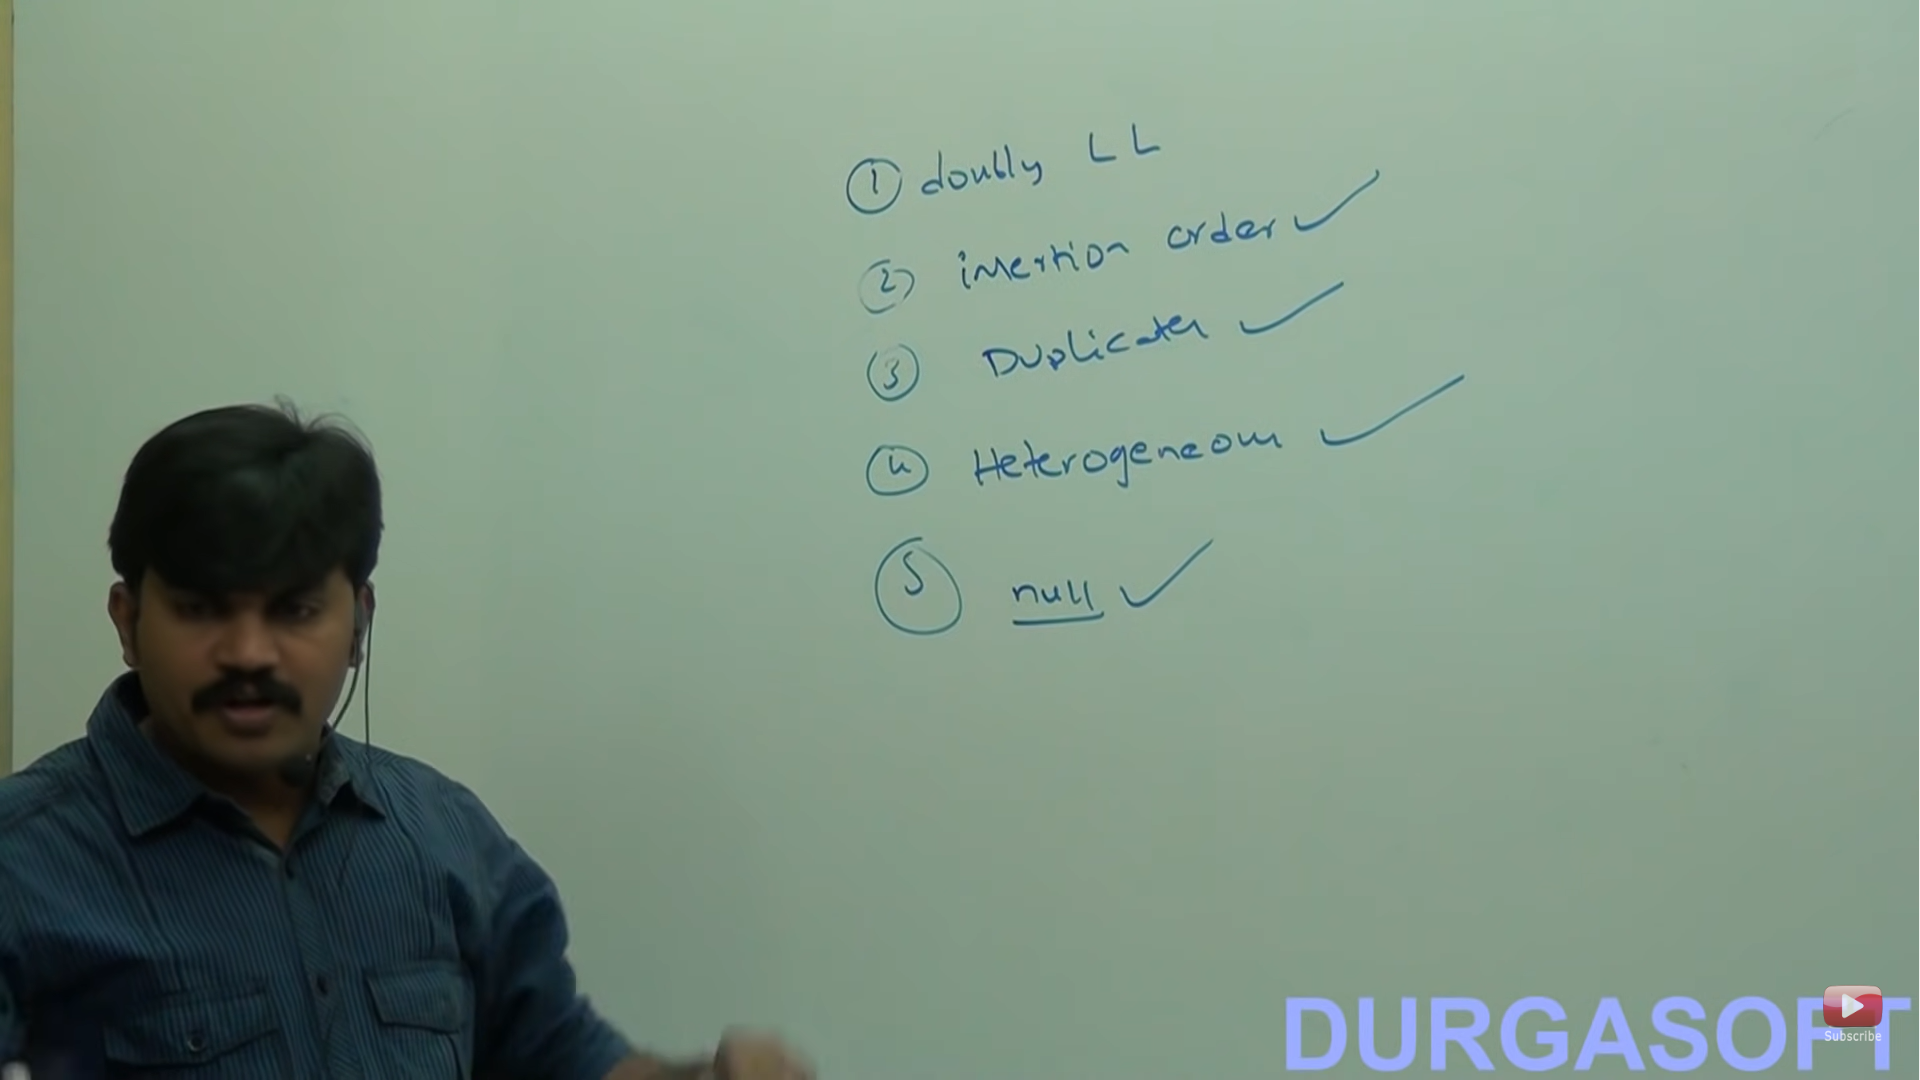 ① doubly LL
② insertion order ✓
③ Duplicates ✓
④ Heterogeneous ✓
⑤ null ✓
DURGASOFT
Subscribe